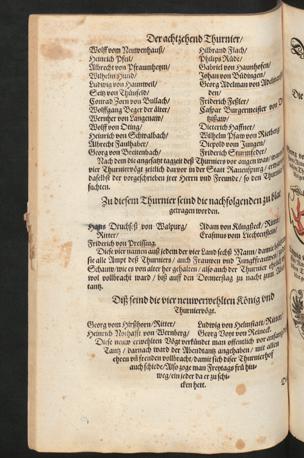 Der achtzehend Thurnier/
Wolff vom Neuwenhauß/
Heinrich Pfeil/
Albrecht von Pfraumheym/
Wilhelm Hund/
Ludwig von
Seitz von
Conrad Zorn von Bullach/
Wolffgang Beger der älter/
Wernher von Langenaw/
Wolff von Oting/
Heinrich von Schwalbach/
Albrecht Faulhaber/
Georg von Breitenbach/
Hilbrand Flach/
Philips Rüde/
Gabriel von Haunhofen/
Johan von Büdingen/
Georg Adelman von Adelman
den/
Friderich Fetzler/
Caspar Burgermeister von
Dieterich Haffner/
Wilhelm Pfaw von Rietberg/
Diepold von Jungen/
Friderich Sturmfeder/
Nach dem die angesetzt tagzeit deß Thurniers vor augen war/
vier Thurniervögt zeitlich darvor in der Statt
daselbst der vorgeschrieben jrer Herrn und Freunde/ so den Thurnier
suchten.
Zu diesem Thurnier seind die nachfolgenden zu blat
getragen worden.
Hans Druchseß von Walpurg/
Ritter/
Friderich von Preissing.
Adam von Künseck/ Ritter/
Erasmus vom Liechtenstein/
Diese vier namen auß jedem der vier Land sechß Mann/ damit
sie alle Ampt deß Thurniers/ auch Frauwen und Jungfrauwen
Schauw/ wie es von alter her gehalten/ also auch der Thurnier
wol vollbracht ward/ biß auff den Donnerstag zu nacht zum
tantz.
Diß seind die vier neuwerwehlten König und
Thurniervögt.
Georg vom Hirßhorn/ Ritter/
Heinrich Nothafft von Wernberg/
Ludwig von Helmstatt/ Ritter/
Georg Voyt von Reineck.
Diese neuw erwehlten Vögt verkündet man offentlich vor anfang
Tantz/ darnach ward der Abendtantz angehaben/ mit allen
ehren und freuden vollbracht/ damit sich dieser Thurnierhof
auch schiede/ Also zoge man Freytags früh hin-
weg/ ein jeder da er zu schi-
cken hett.